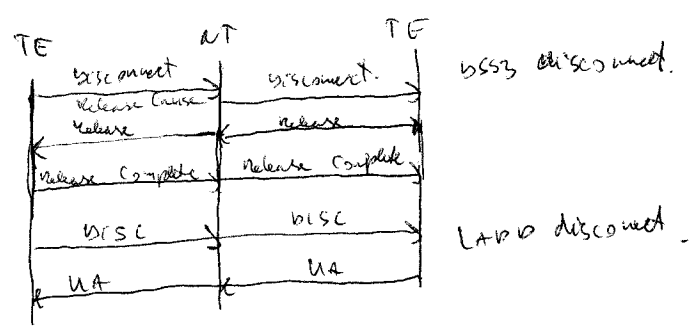 TE NT TE
Disconnect Disconnect. DSS3 disconnect.
Release Cause
Release Release
Release Complete Release Complete
DISC DISC LAPD disconect.
UA UA